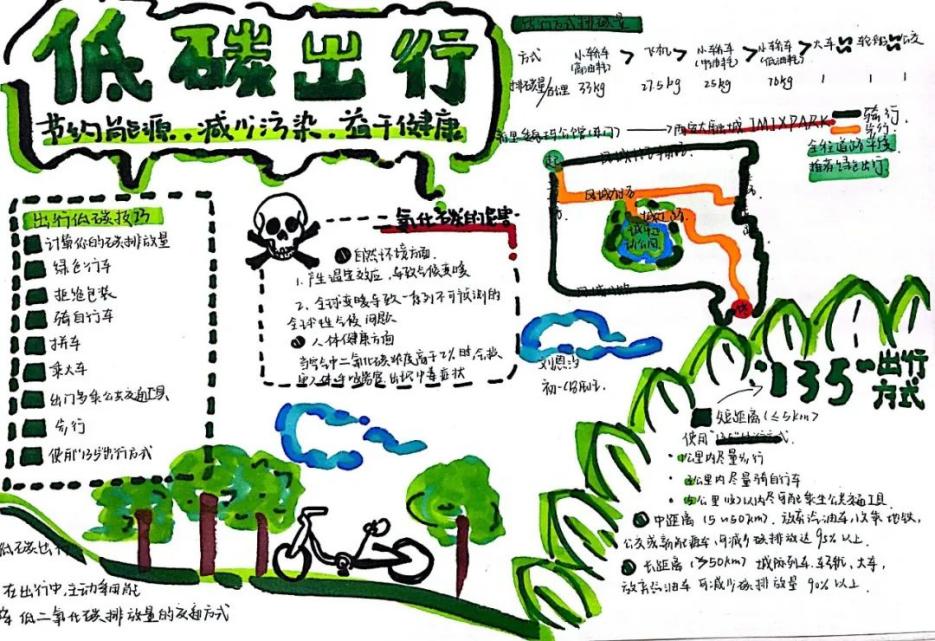 低碳出行
节约能源..减少污染.益于健康
出行方式排碳量
方式 小轿车(高油耗) > 飞机 > 小轿车(中油耗) > 小轿车(低油耗) > 火车 轮船 公交
排碳量/百公里 33kg 27.5kg 25kg 20kg
骑行
步行
全程道路平缓
推荐绿色出行
出行低碳技巧
计算你的碳排放量
绿色行车
拒绝包装
骑自行车
拼车
乘火车
出门多乘公交工具
步行
使用"135"出行方式
氧化碳的危害
自然环境方面
1.产生温室效应,导致气候变暖
2.全球变暖导致一系列不可预测的
全球性气候问题
人体健康方面
当空气中二氧化碳浓度高于2%时,会
出现中毒症状
城市运动公园
"135"出行方式
短距离(≤5km)
使用"135"出行方式.
·1公里内尽量步行
·3公里内尽量骑自行车
·5公里以内尽可能乘坐公共交通工具
中距离(5~50km).放弃汽油车,乘地铁,
公交或新能源车,可减少碳排放达95%以上.
长距离(≥50km)城际列车,火车,
放弃油车 可减少碳排放量90%以上.
低碳出
在出行中,主动采用能
低二氧化碳排放量的交通方式